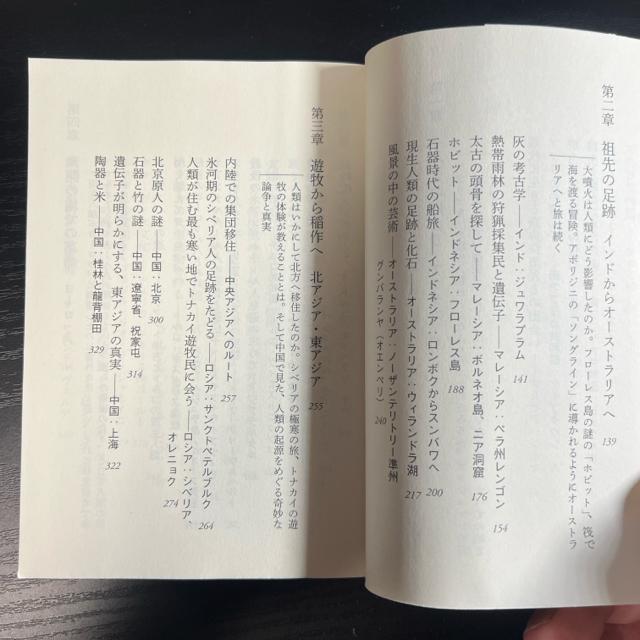 第二章　祖先の足跡　インドからオーストラリアへ　139
大噴火は人類にどう影響したのか。フローレス島の謎の「ホビット」、筏で
海を渡る冒険。アボリジニの「ソングライン」に導かれるようにオーストラ
リアへと旅は続く
灰の考古学――インド：ジュワラプラム　141
熱帯雨林の狩猟採集民と遺伝子――マレーシア：ペラ州レンゴン　154
太古の頭骨を探して――マレーシア：ボルネオ島、ニア洞窟　176
ホビット――インドネシア：フローレス島　188
石器時代の船旅――インドネシア：ロンボクからスンバワへ　200
現生人類の足跡と化石――オーストラリア：ウィランドラ湖　217
風景の中の芸術――オーストラリア：ノーザンテリトリー準州
グンバランヤ（オエンペリ）　240
第三章　遊牧から稲作へ　北アジア・東アジア　255
人類はいかにして北方へ移住したのか。シベリアの極寒の旅、トナカイの遊
牧の体験が教えることとは。そして中国で見た、人類の起源をめぐる奇妙な
論争と真実
内陸での集団移住――中央アジアへのルート　257
氷河期のシベリア人の足跡をたどる――ロシア：サンクトペテルブルク　264
人類が住む最も寒い地でトナカイ遊牧民に会う――ロシア：シベリア、
オレニョク　274
北京原人の謎――中国：北京　300
石器と竹の謎――中国：遼寧省、祝家屯　314
遺伝子が明らかにする、東アジアの真実――中国：上海　322
陶器と米――中国：桂林と龍背棚田　329